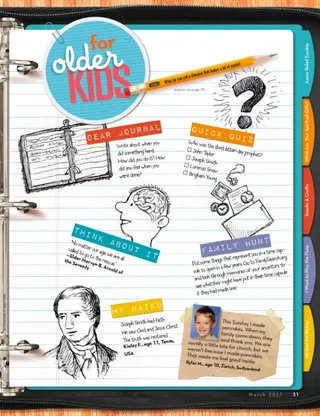 for
older
KIDS
What do you call a dinosaur that knows a lot of words?
Answer on page 29.
DEAR JOURNAL
Write about when you
did something hard.
How did you do it? How
did you feel when you
were done?
QUICK QUIZ
Who was the third latter-day prophet?
John Taylor
Joseph Smith
Lorenzo Snow
Brigham Young
THINK ABOUT IT
"No matter our age, we are all
called to go to the rescue."
—Elder Mervyn B. Arnold of
the Seventy
FAMILY HUNT
Put some things that represent you in a time cap-
sule to open in a few years. Go to FamilySearch.org
and look through memories of your ancestors to
see what they might have put in their time capsule
if they had made one.
MY HAIKU
Joseph Smith had faith
He saw God and Jesus Christ
The truth was restored
Kinley F., age 11, Texas,
USA
This Sunday I made
pancakes. When my
family came down, they
said thank you. We are
usually a little late for church, but we
weren't because I made pancakes.
That made me feel good inside.
Kyler M., age 10, Zürich, Switzerland
March 2017 31